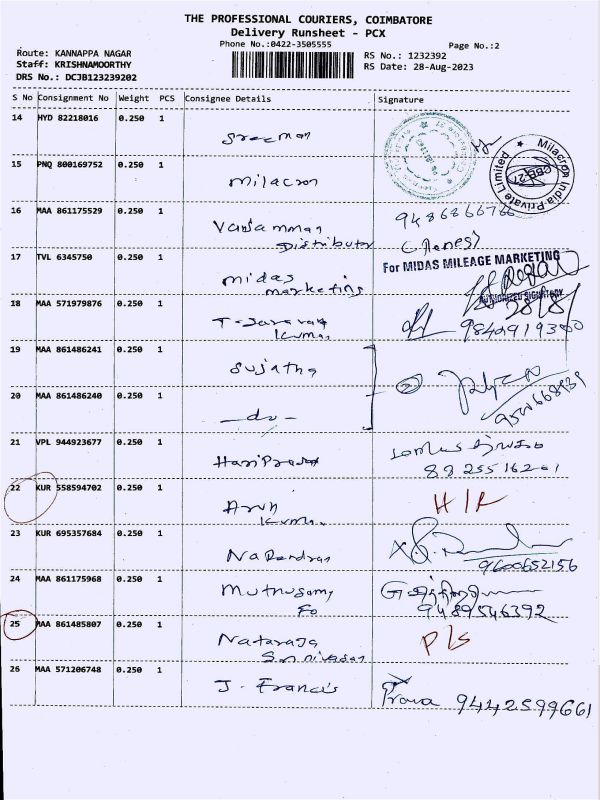 THE PROFESSIONAL COURIERS, COIMBATORE
Delivery Runsheet - PCX
Phone No.:0422-3505555
Page No.:2
Route: KANNAPPA NAGAR
RS No.: 1232392
Staff: KRISHNAMOORTHY
RS Date: 28-Aug-2023
DRS No.: DCJB123239202
S No Consignment No Weight PCS Consignee Details Signature
14 HYD 82218016 0.250 1
Sreeman
15 PNQ 800169752 0.250 1
Milacron
Milacron India Private Limited
CBE-27
16 MAA 861175529 0.250 1
Distributor
17 TVL 6345750 0.250 1
midas
marketing
For MIDAS MILEAGE MARKETING
AUTHORIZED SIGNATORY
18 MAA 571979876 0.250 1
Kumar
19 MAA 861486241 0.250 1
Sujatha
20 MAA 861486240 0.250 1
-do-
21 VPL 944923677 0.250 1
HariPrasath
88255 16201
22 KUR 558594702 0.250 1
Arun
Kumar
23 KUR 695357684 0.250 1
Narendran
9600652156
24 MAA 861175968 0.250 1
Muthusamy
9489546392
25 MAA 861485807 0.250 1
Nataraja
Srinivasan
P/s
26 MAA 571206748 0.250 1
J. Francis
9442599661